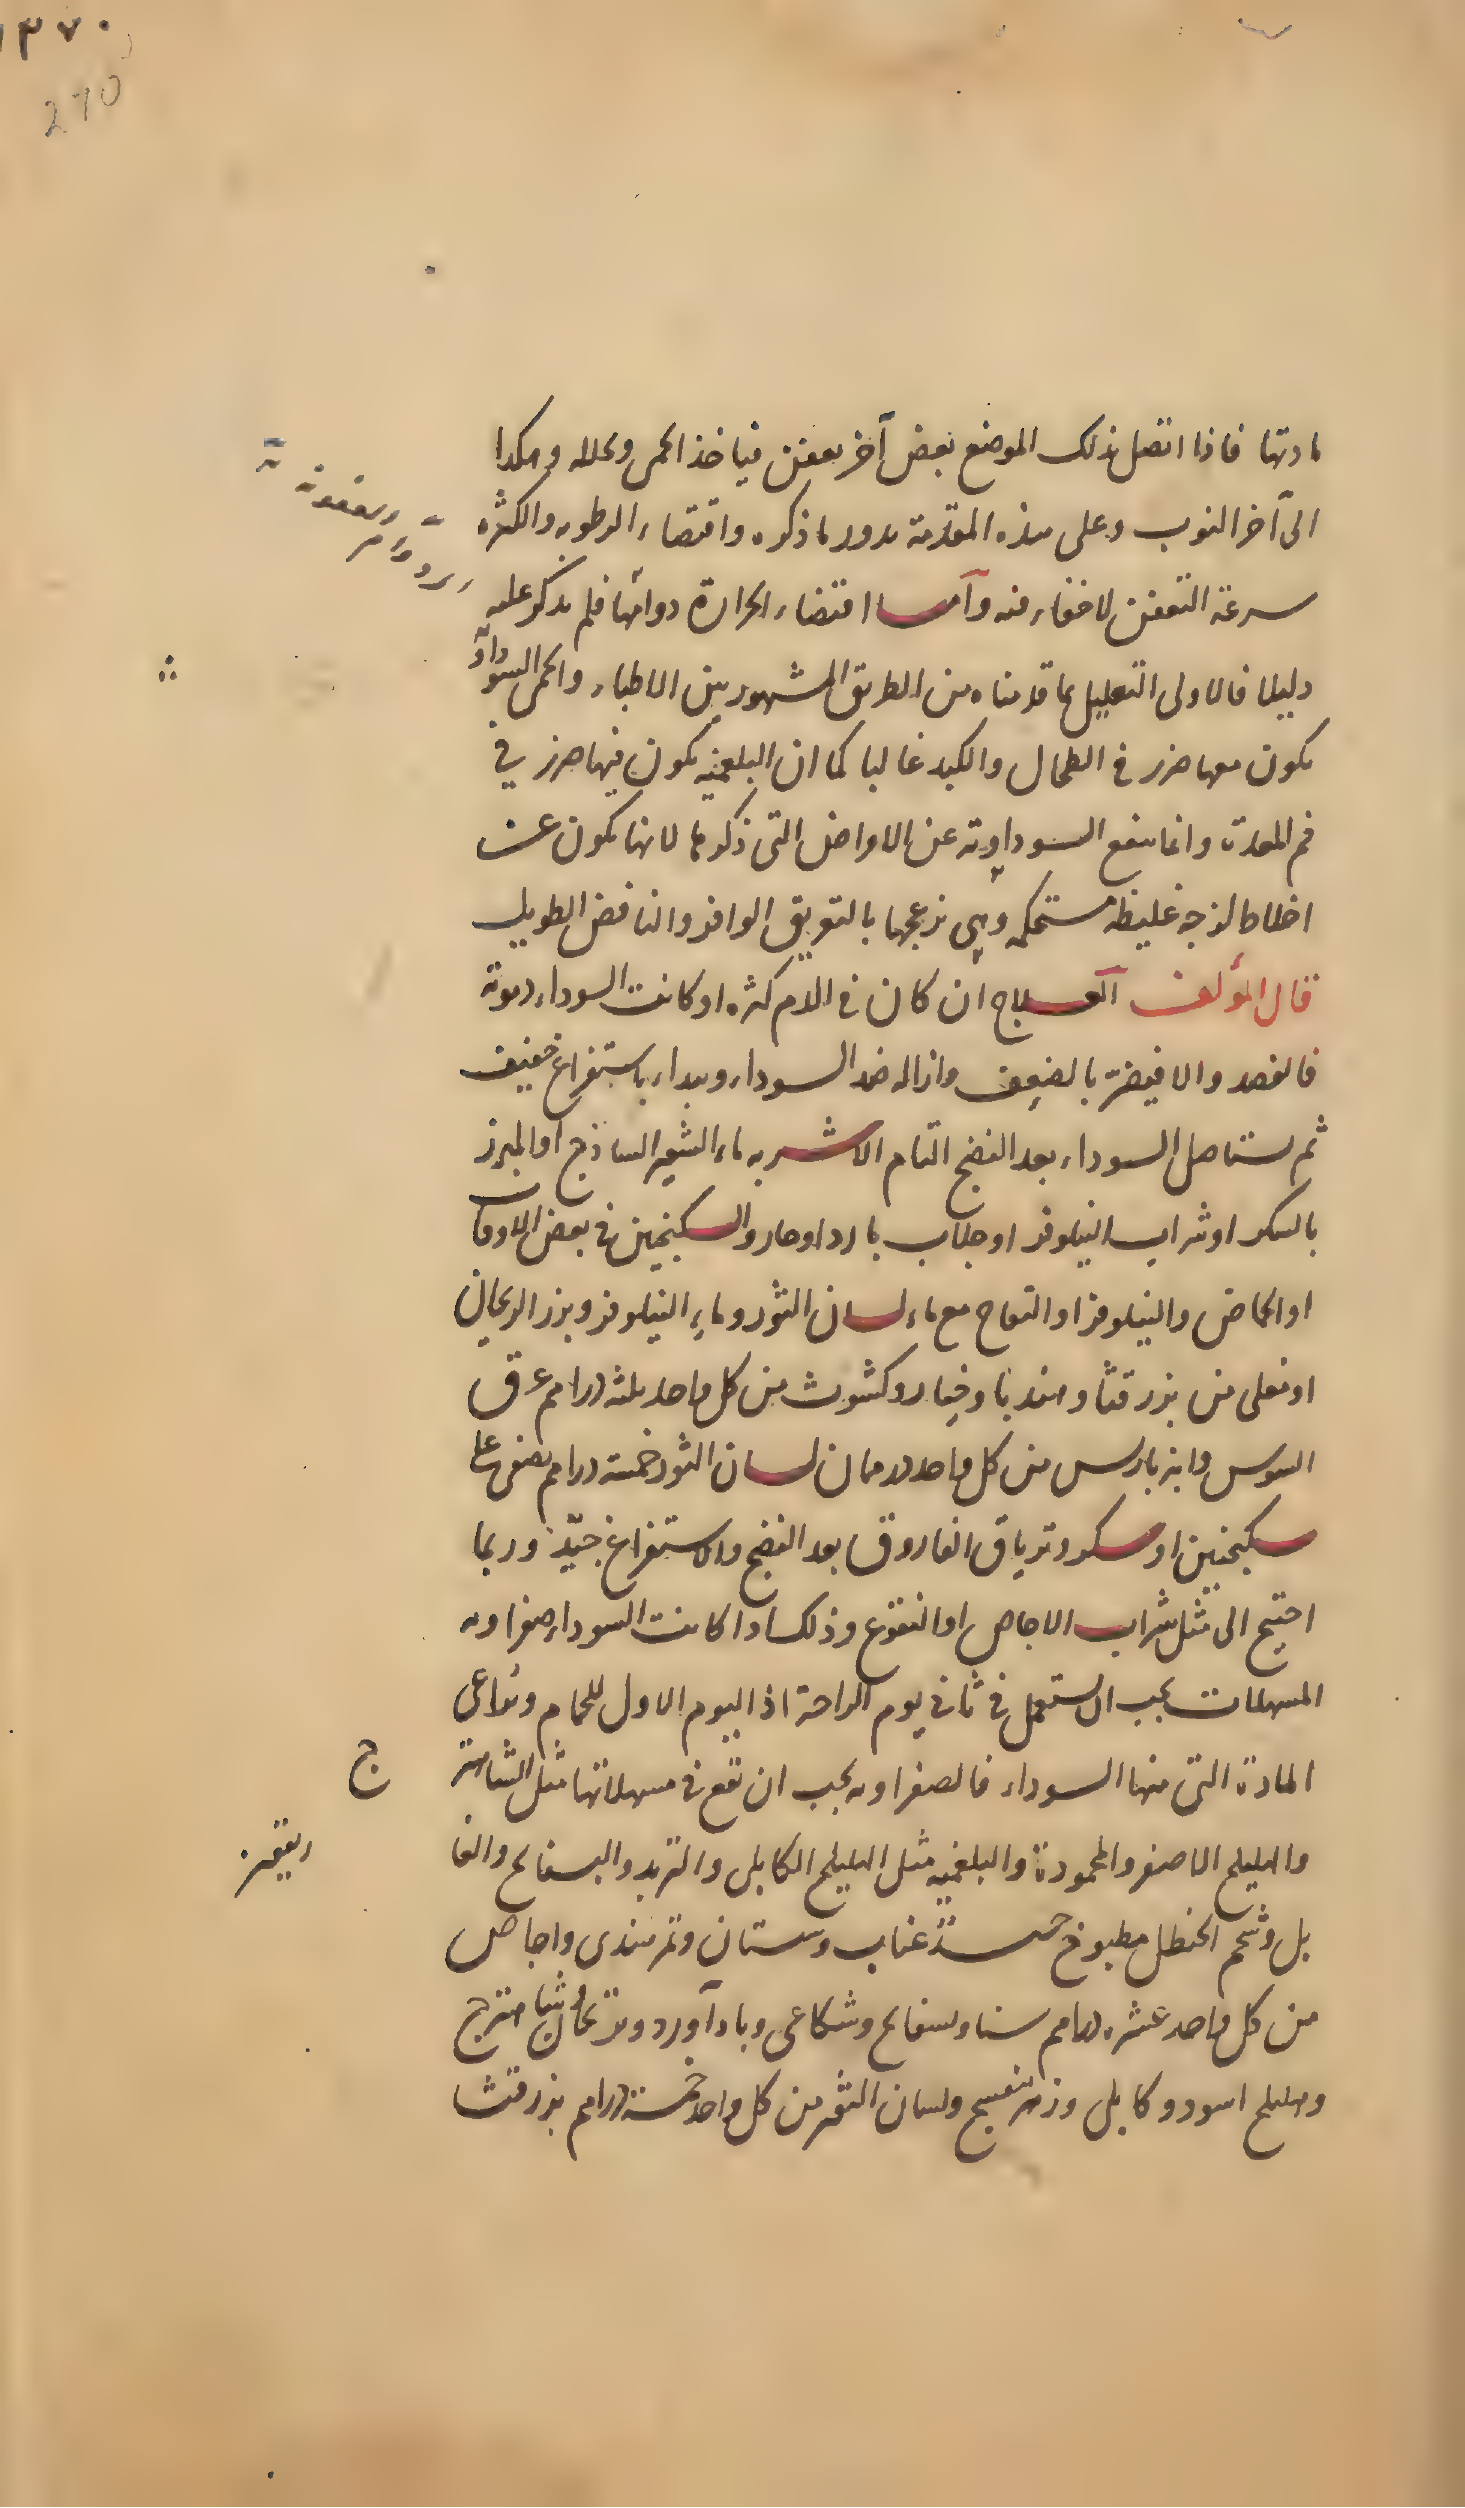 ١٣٧٠
290
مادتها فاذا اتصل بذلك الموضع بعض آخر يعفن فياخذ الحمى وتحلله وهكذا
الى آخر النوب وعلى هذه المقدمة يدور ما ذكره واقتضاء الرطوبه والكثره
سرعة التعفن لا خفاء فيه وآما اقتضاء الحرارة دوامها فلم يذكر عليه
دليلا فالاولى التعليل بما قدمناه من الطريق المشهور بين الاطباء والحمى السوداويه
يكون معها ضرر في الطحال والكبد غالبا كما ان البلغميه يكون فيها ضرر في
فم المعدة وانما ينفع السوداوية عن الامراض التي ذكرها لانها يكون عن
اخلاط لزجه غليظه مستحكمه وهي تزعجها بالتعريق الوافر والنافض الطويل
قال المؤلف آلعلاج ان كان في الدم كثره او كانت السوداء دموية
فالفصد والا فيضر بالضعف وازاله ضد السوداء ويبداء باستفراغ خفيف
ثم يستاصل السوداء بعد النضج التام الاشربه ماء الشعير الساذج او المبزر
بالسكر او شراب النيلوفر او جلاب بارد او حار والسكنجبين في بعض الاوقات
او الحماض والنيلوفر او التفاح مع ماء لسان الثور وماء النيلوفر وبزر الريحان
او مغلى من بزر قثا وهندبا وخيار وكشوث من كل واحد ثلثة دراهم عرق
السوس وانبرباريس من كل واحد درهمان لسان الثور خمسة دراهم يصفى على
سكنجبين او سكر وترياق الفاروق بعد النضج والاستفراغ جيّد وربما
احتيج الى مثل شراب الاجاص او النقوع وذلك اذا كانت السوداء صفراويه
المسهلات يجب ان يستعمل في ثاني يوم الراحة اذ اليوم الاول للحمام وتراعى
المادة التي منها السوداء فالصفراويه يجب ان تقع في مسهلاتها مثل الشاهترج
والهليلج الاصفر والمحمودة والبلغميه مثل الهليلج الكابلي والتربد والبسفايج والغا
ريقون
بل وشحم الحنظل مطبوخ عناب وسبستان وتمر هندى واجاص
من كل واحد عشره دراهم سنا وبسفايج وشكاعى وباد آورد شاهترج
وهليلج اسود وكابلي وزهر بنفسج ولسان الثور من كل واحد خمسة دراهم بزر قثا